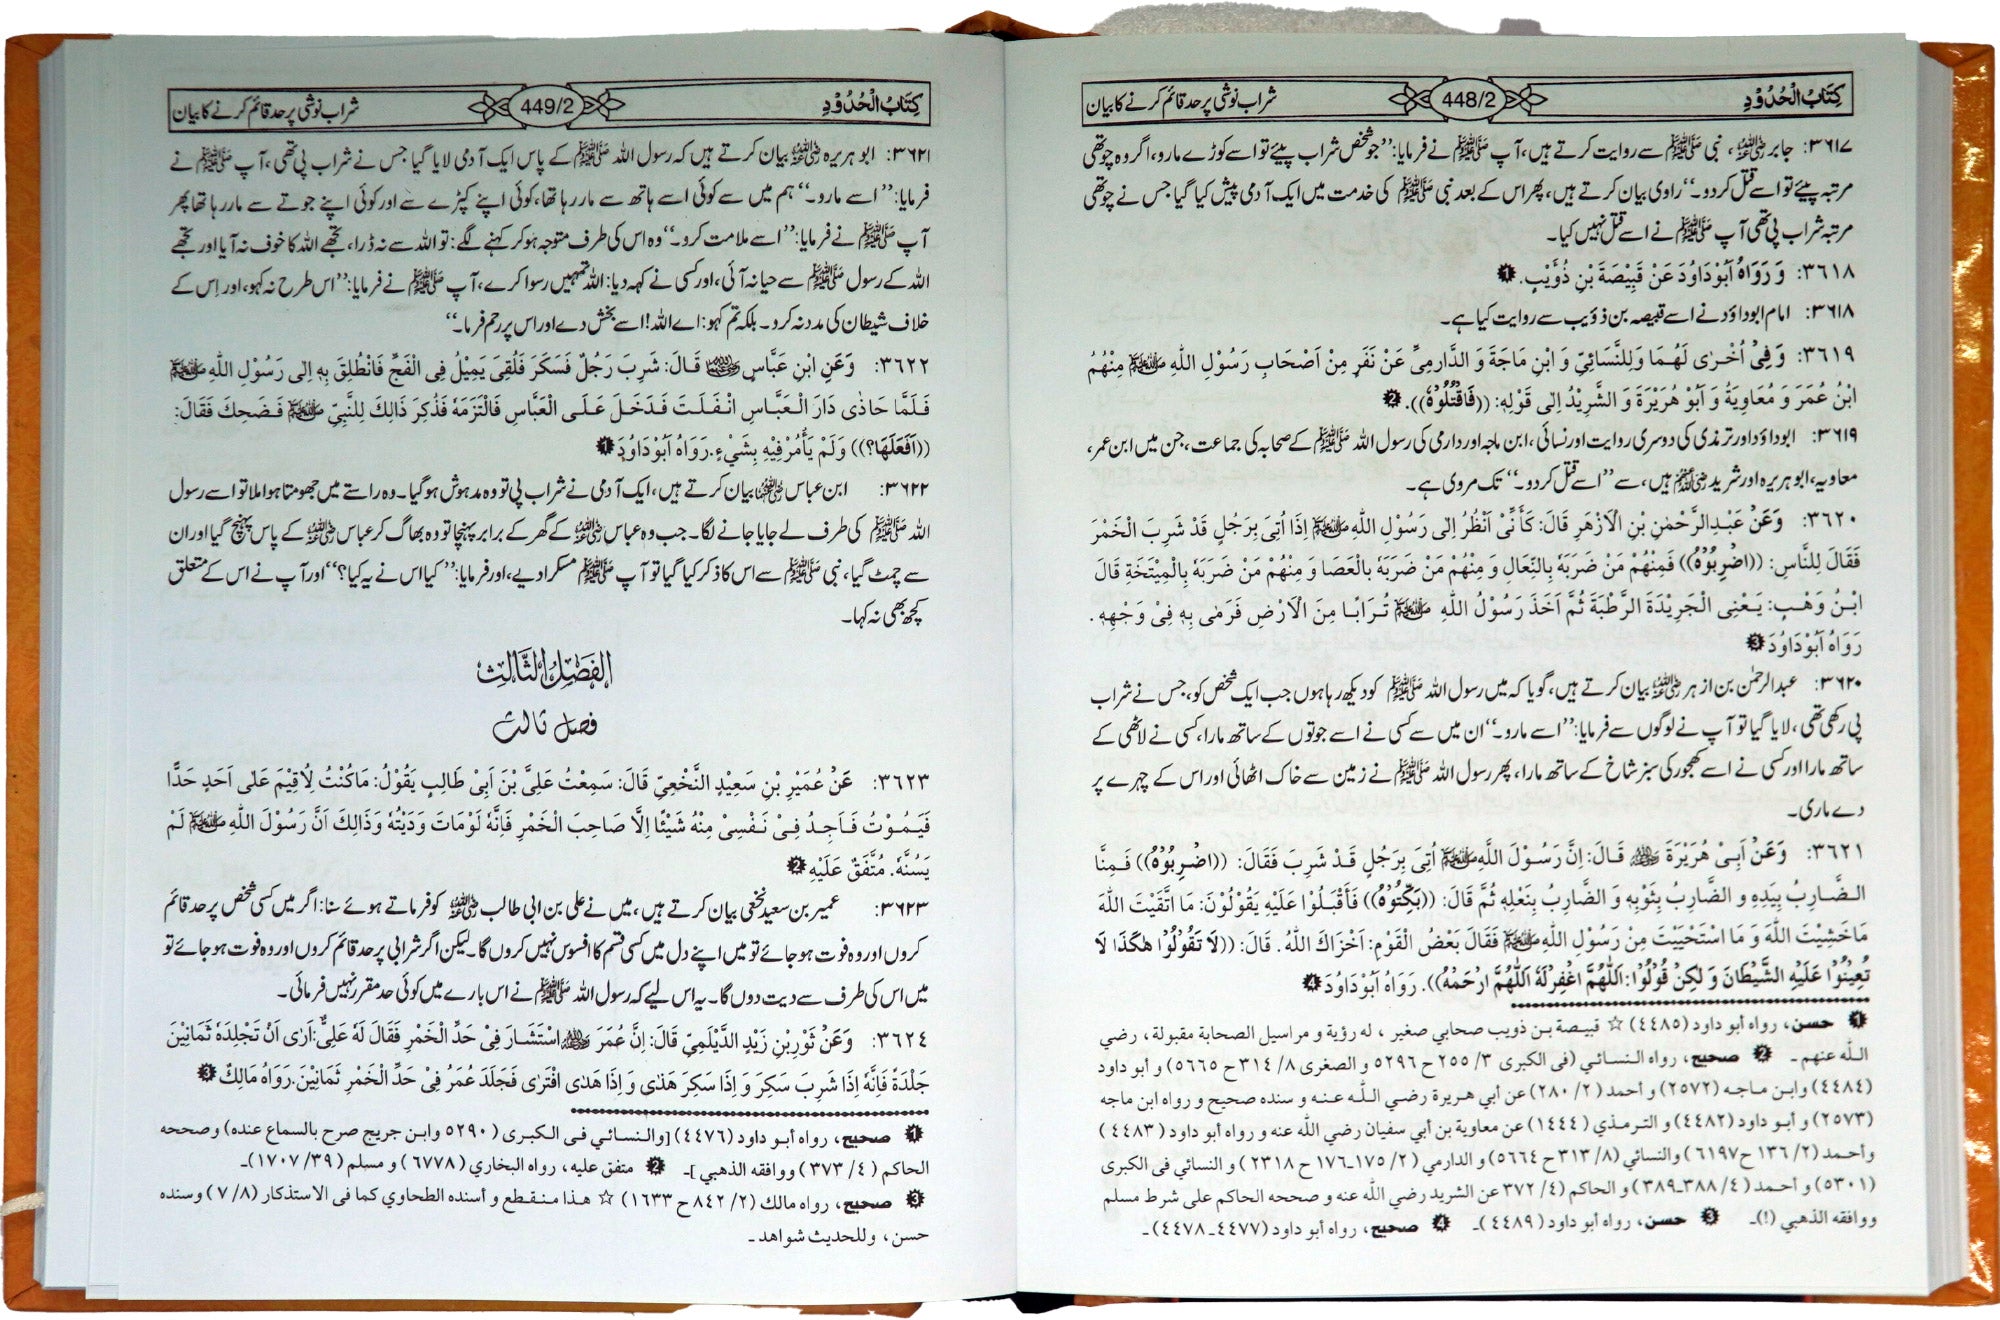 کِتَابُ الْحُدُوْدِ 448/2 شراب نوشی پر حد قائم کرنے کا بیان
۳۶۱۷: جابر رضی اللہ عنہ، نبی ﷺ سے روایت کرتے ہیں، آپ ﷺ نے فرمایا: ’’جو شخص شراب پیئے تو اسے کوڑے مارو، اگر وہ چوتھی
مرتبہ پیئے تو اسے قتل کر دو۔‘‘ راوی بیان کرتے ہیں، پھر اس کے بعد نبی ﷺ کی خدمت میں ایک آدمی پیش کیا گیا جس نے چوتھی
مرتبہ شراب پی تھی آپ ﷺ نے اسے قتل نہیں کیا۔
۳۶۱۸: وَ رَوَاهُ اَبُوْ دَاوُدَ عَنْ قَبِيْصَةَ بْنِ ذُوَّيْبٍ. ❶
۳۶۱۸: امام ابوداؤد نے اسے قبیصہ بن ذؤیب سے روایت کیا ہے۔
۳۶۱۹: وَفِيْ اُخْرٰى لَهُمَا وَلِلنَّسَائِيِّ وَ ابْنِ مَاجَةَ وَ الدَّارِمِيِّ عَنْ نَفَرٍ مِنْ اَصْحَابِ رَسُوْلِ اللّٰهِ ﷺ مِنْهُمُ
ابْنُ عُمَرَ وَ مُعَاوِيَةُ وَ اَبُوْ هُرَيْرَةَ وَ الشَّرِيْدُ اِلٰى قَوْلِهٖ: ((فَاقْتُلُوْهُ)). ❷
۳۶۱۹: ابوداؤد اور ترمذی کی دوسری روایت اور نسائی، ابن ماجہ اور دارمی کی رسول اللہ ﷺ کے صحابہ کی جماعت، جن میں ابن عمر،
معاویہ، ابو ہریرہ اور شرید رضی اللہ عنہم ہیں، سے ’’اسے قتل کر دو۔‘‘ تک مروی ہے۔
۳۶۲۰: وَعَنْ عَبْدِالرَّحْمٰنِ بْنِ الْاَزْهَرِ قَالَ: كَأَنِّيْ اَنْظُرُ اِلٰى رَسُوْلِ اللّٰهِ ﷺ اِذَا اُتِىَ بِرَجُلٍ قَدْ شَرِبَ الْخَمْرَ
فَقَالَ لِلنَّاسِ: ((اضْرِبُوْهُ)) فَمِنْهُمْ مَنْ ضَرَبَهٗ بِالنِّعَالِ وَ مِنْهُمْ مَنْ ضَرَبَهٗ بِالْعَصَا وَ مِنْهُمْ مَنْ ضَرَبَهٗ بِالْمِيْتَخَةِ قَالَ
ابْنُ وَهْبٍ: يَعْنِى الْجَرِيْدَةَ الرَّطْبَةَ ثُمَّ اَخَذَ رَسُوْلُ اللّٰهِ ﷺ تُرَابًا مِنَ الْاَرْضِ فَرَمٰى بِهٖ فِيْ وَجْهِهٖ .
رَوَاهُ اَبُوْ دَاوُدَ ❸
۳۶۲۰: عبدالرحمٰن بن ازہر رضی اللہ عنہ بیان کرتے ہیں، گویا کہ میں رسول اللہ ﷺ کو دیکھ رہا ہوں جب ایک شخص کو، جس نے شراب
پی رکھی تھی، لایا گیا تو آپ نے لوگوں سے فرمایا: ’’اسے مارو۔‘‘ ان میں سے کسی نے اسے جوتوں کے ساتھ مارا، کسی نے لاٹھی کے
ساتھ مارا اور کسی نے اسے کھجور کی سبز شاخ کے ساتھ مارا، پھر رسول اللہ ﷺ نے زمین سے خاک اٹھائی اور اس کے چہرے پر
دے ماری۔
۳۶۲۱: وَعَنْ اَبِيْ هُرَيْرَةَ رضی اللہ عنہ قَالَ: اِنَّ رَسُوْلَ اللّٰهِ ﷺ اُتِىَ بِرَجُلٍ قَدْ شَرِبَ فَقَالَ: ((اضْرِبُوْهُ)) فَمِنَّا
الضَّارِبُ بِيَدِهٖ وَ الضَّارِبُ بِثَوْبِهٖ وَ الضَّارِبُ بِنَعْلِهٖ ثُمَّ قَالَ: ((بَكِّتُوْهُ)) فَأَقْبَلُوْا عَلَيْهِ يَقُوْلُوْنَ: مَا اتَّقَيْتَ اللّٰهَ
مَاخَشِيْتَ اللّٰهَ وَ مَا اسْتَحْيَيْتَ مِنْ رَسُوْلِ اللّٰهِ ﷺ فَقَالَ بَعْضُ الْقَوْمِ: اَخْزَاكَ اللّٰهُ . قَالَ: ((لَا تَقُوْلُوْا هٰكَذَا لَا
تُعِيْنُوْا عَلَيْهِ الشَّيْطَانَ وَ لٰكِنْ قُوْلُوْا: اَللّٰهُمَّ اغْفِرْلَهٗ اَللّٰهُمَّ ارْحَمْهُ)). رَوَاهُ اَبُوْدَاوُدَ ❹
❶ حسن، رواه أبو داود (٤٤٨٥) ☆ قبيصة بن ذويب صحابي صغير ، له رؤية و مراسيل الصحابة مقبولة ، رضي
الله عنهم ۔ ❷ صحيح، رواه النسائي (فى الكبرى ٣/ ٢٥٥ ح ٥٢٩٦ و الصغرى ٨/ ٣١٤ ح ٥٦٦٥) و أبو داود
(٤٤٨٤) وابن ماجه (٢٥٧٢) و أحمد (٢/ ٢٨٠) عن أبي هريرة رضي الله عنه و سنده صحيح و رواه ابن ماجه
(٢٥٧٣) و أبو داود (٤٤٨٢) و الترمذي (١٤٤٤) عن معاوية بن أبي سفيان رضي الله عنه و رواه أبو داود (٤٤٨٣)
وأحمد (٢/ ١٣٦ ح ٦١٩٧) والنسائي (٨/ ٣١٣ ح ٥٦٦٤) و الدارمي (٢/ ١٧٥۔١٧٦ ح ٢٣١٨) و النسائي فى الكبرى
(٥٣٠١) و أحمد (٤/ ٣٨٨۔٣٨٩) و الحاكم (٤/ ٣٧٢ عن الشريد رضي الله عنه و صححه الحاكم على شرط مسلم
ووافقه الذهبي (!)۔ ❸ حسن، رواه أبو داود (٤٤٨٩)۔ ❹ صحيح، رواه أبو داود (٤٤٧٧۔٤٤٧٨)۔
کِتَابُ الْحُدُوْدِ 449/2 شراب نوشی پر حد قائم کرنے کا بیان
۳۶۲۱: ابو ہریرہ رضی اللہ عنہ بیان کرتے ہیں کہ رسول اللہ ﷺ کے پاس ایک آدمی لایا گیا جس نے شراب پی تھی، آپ ﷺ نے
فرمایا: ’’اسے مارو۔‘‘ ہم میں سے کوئی اسے ہاتھ سے مار رہا تھا، کوئی اپنے کپڑے سے اور کوئی اپنے جوتے سے مار رہا تھا پھر
آپ ﷺ نے فرمایا: ’’اسے ملامت کرو۔‘‘ وہ اس کی طرف متوجہ ہو کر کہنے لگے: تو اللہ سے نہ ڈرا، تجھے اللہ کا خوف نہ آیا اور تجھے
اللہ کے رسول ﷺ سے حیا نہ آئی، اور کسی نے کہہ دیا: اللہ تمہیں رسوا کرے، آپ ﷺ نے فرمایا: ’’اس طرح نہ کہو، اور اس کے
خلاف شیطان کی مدد نہ کرو۔ بلکہ تم کہو: اے اللہ! اسے بخش دے اور اس پر رحم فرما۔‘‘
۳۶۲۲: وَعَنِ ابْنِ عَبَّاسٍ رضی اللہ عنہما قَالَ: شَرِبَ رَجُلٌ فَسَكَرَ فَلُقِىَ يَمِيْلُ فِى الْفَجِّ فَانْطُلِقَ بِهٖ اِلٰى رَسُوْلِ اللّٰهِ ﷺ
فَلَمَّا حَاذٰى دَارَ الْعَبَّاسِ انْفَلَتَ فَدَخَلَ عَلَى الْعَبَّاسِ فَالْتَزَمَهٗ فَذُكِرَ ذَالِكَ لِلنَّبِيِّ ﷺ فَضَحِكَ فَقَالَ:
((اَفَعَلَهَا؟)) وَلَمْ يَأْمُرْ فِيْهِ بِشَيْءٍ. رَوَاهُ اَبُوْدَاوُدَ ❶
۳۶۲۲: ابن عباس رضی اللہ عنہما بیان کرتے ہیں، ایک آدمی نے شراب پی تو وہ مدہوش ہو گیا۔ وہ راستے میں جھومتا ہوا ملا تو اسے رسول
اللہ ﷺ کی طرف لے جایا جانے لگا۔ جب وہ عباس رضی اللہ عنہ کے گھر کے برابر پہنچا تو وہ بھاگ کر عباس رضی اللہ عنہ کے پاس پہنچ گیا اور ان
سے چمٹ گیا، نبی ﷺ سے اس کا ذکر کیا گیا تو آپ ﷺ مسکرا دیے، اور فرمایا: ’’کیا اس نے یہ کیا؟‘‘ اور آپ نے اس کے متعلق
کچھ بھی نہ کہا۔
الفَصْلُ الثَّالِث
فصل ثالث
۳۶۲۳: عَنْ عُمَيْرِ بْنِ سَعِيْدٍ النَّخْعِيِّ قَالَ: سَمِعْتُ عَلِيَّ بْنَ اَبِيْ طَالِبٍ يَقُوْلُ: مَاكُنْتُ لِاُقِيْمَ عَلٰى اَحَدٍ حَدًّا
فَيَمُوْتُ فَاَجِدُ فِيْ نَفْسِيْ مِنْهُ شَيْئًا اِلَّا صَاحِبَ الْخَمْرِ فَاِنَّهٗ لَوْمَاتَ وَدَيْتُهٗ وَذَالِكَ اَنَّ رَسُوْلَ اللّٰهِ ﷺ لَمْ
يَسُنَّهٗ. مُتَّفَقٌ عَلَيْهِ ❷
۳۶۲۳: عمیر بن سعید نخعی بیان کرتے ہیں، میں نے علی بن ابی طالب رضی اللہ عنہ کو فرماتے ہوئے سنا: اگر میں کسی شخص پر حد قائم
کروں اور وہ فوت ہو جائے تو میں اپنے دل میں کسی قسم کا افسوس نہیں کروں گا۔ لیکن اگر شرابی پر حد قائم کروں اور وہ فوت ہو جائے تو
میں اس کی طرف سے دیت دوں گا۔ یہ اس لیے کہ رسول اللہ ﷺ نے اس بارے میں کوئی حد مقرر نہیں فرمائی۔
۳۶۲٤: وَعَنْ ثَوْرِبْنِ زَيْدٍ الدَّيْلَمِيِّ قَالَ: اِنَّ عُمَرَ رضی اللہ عنہ اسْتَشَارَ فِيْ حَدِّ الْخَمْرِ فَقَالَ لَهٗ عَلِيٌّ: اَرٰى اَنْ تَجْلِدَهٗ ثَمَانِيْنَ
جَلْدَةً فَاِنَّهٗ اِذَا شَرِبَ سَكِرَ وَ اِذَا سَكِرَ هَذٰى وَ اِذَا هَذٰى افْتَرٰى فَجَلَدَ عُمَرُ فِيْ حَدِّ الْخَمْرِ ثَمَانِيْنَ. رَوَاهُ مَالِكٌ ❸
❶ صحيح، رواه أبو داود (٤٤٧٦) [والنسائي فى الكبرى (٥٢٩٠ وابن جريج صرح بالسماع عنده) وصححه
الحاكم (٤/ ٣٧٣) ووافقه الذهبي]۔ ❷ متفق عليه، رواه البخاري (٦٧٧٨) و مسلم (٣٩/ ١٧٠٧)۔
❸ صحيح، رواه مالك (٢/ ٨٤٢ ح ١٦٣٣) ☆ هذا منقطع و أسنده الطحاوي كما فى الاستذكار (٨/ ٧) وسنده
حسن ، وللحديث شواهد ۔